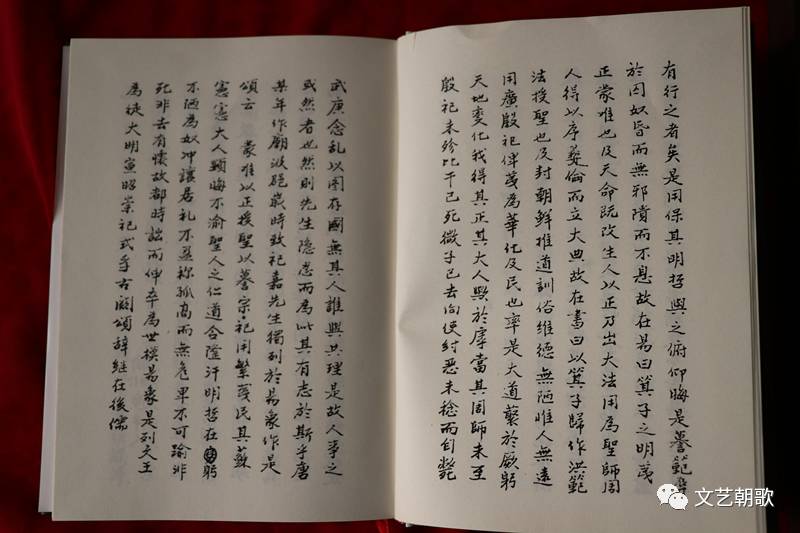 有行之者矣是用保其明哲與之俯仰晦是謩範辱
於囚奴昏而無邪隤而不息故在易曰箕子之明夷
正蒙难也及天命既改生人以正乃出大法用為聖師周
人得以序彝倫而立大典故在書曰以箕子歸作洪範
法授聖也及封朝鮮推道訓俗維德無陋唯人無遠
用廣殷祀俾夷為華化及民也率是大道藂於厥躬
天地變化我得其正其大人歟於虖當其周師未至
殷祀未殄比干已死微子已去向使紂惡未稔而自斃
武庚念乱以圖存國無其人誰與共理是故人事之
或然者也然則先生隱忍而為此其有志於斯乎唐
某年作廟汲郡歲時致祀嘉先生獨列於易象作是
頌云 蒙难以正授聖以謩宗祀用繁夷民其蘇
憲憲大人顯晦不渝聖人之仁道合隆汙明哲在躬
不陋為奴冲讓居礼不盈称孤高而無危卑不可踰非
死非去有懷故都時詘而伸卒為世模易象是列文王
為徒大明宣昭崇祀式孚古闕頌辞继在後儒
文艺朝歌